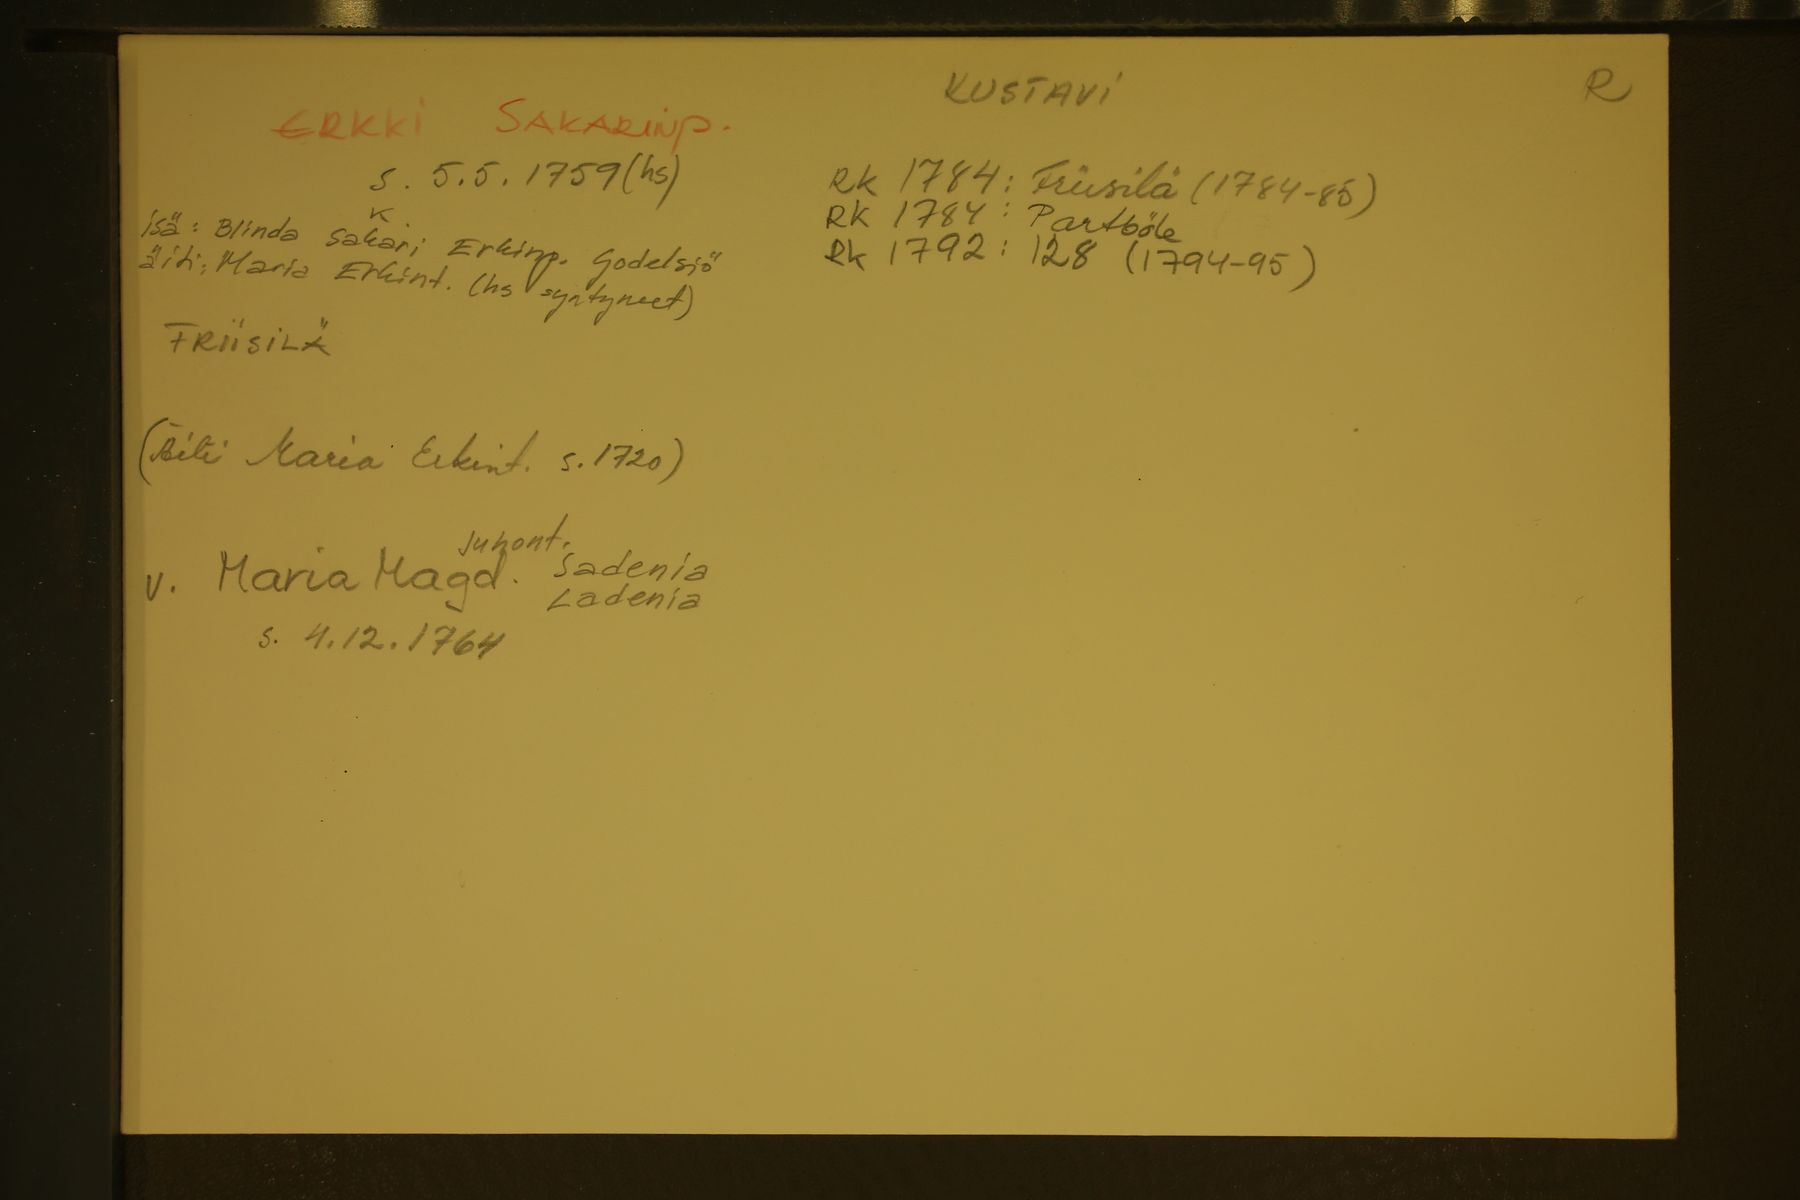 KUSTAVI
R
ERKKI SAKARINP.
s. 5.5.1759 (hs)
isä: Blinda Sakari Erkinp. Godelsjö
k
äiti: Maria Erkint. (hs syntyneet)
FRIISILÄ
(Äiti Maria Erkint. s. 1720)
Juhont.
v. Maria Magd. Sadenia
Ladenia
s. 4.12.1764
RK 1784: Friisilä (1784-85)
RK 1784: Partböle
RK 1792: 128 (1794-95)